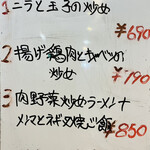 1 ニラと玉子の炒め
¥690
2 揚げ鶏肉とキャベツの
炒め
¥790
3 肉野菜炒めラーメン+
ﾊﾑとネギの焼ご飯
¥850